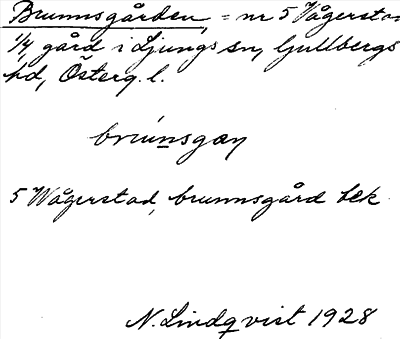 Brunnsgården, = nr 5 Vågerstad
1/4 gård i Ljungs sn, Gullbergs
hd, Österg. l.
brúnsgaṇ
5 Wågerstad, brunnsgård bek
N. Lindqvist 1928